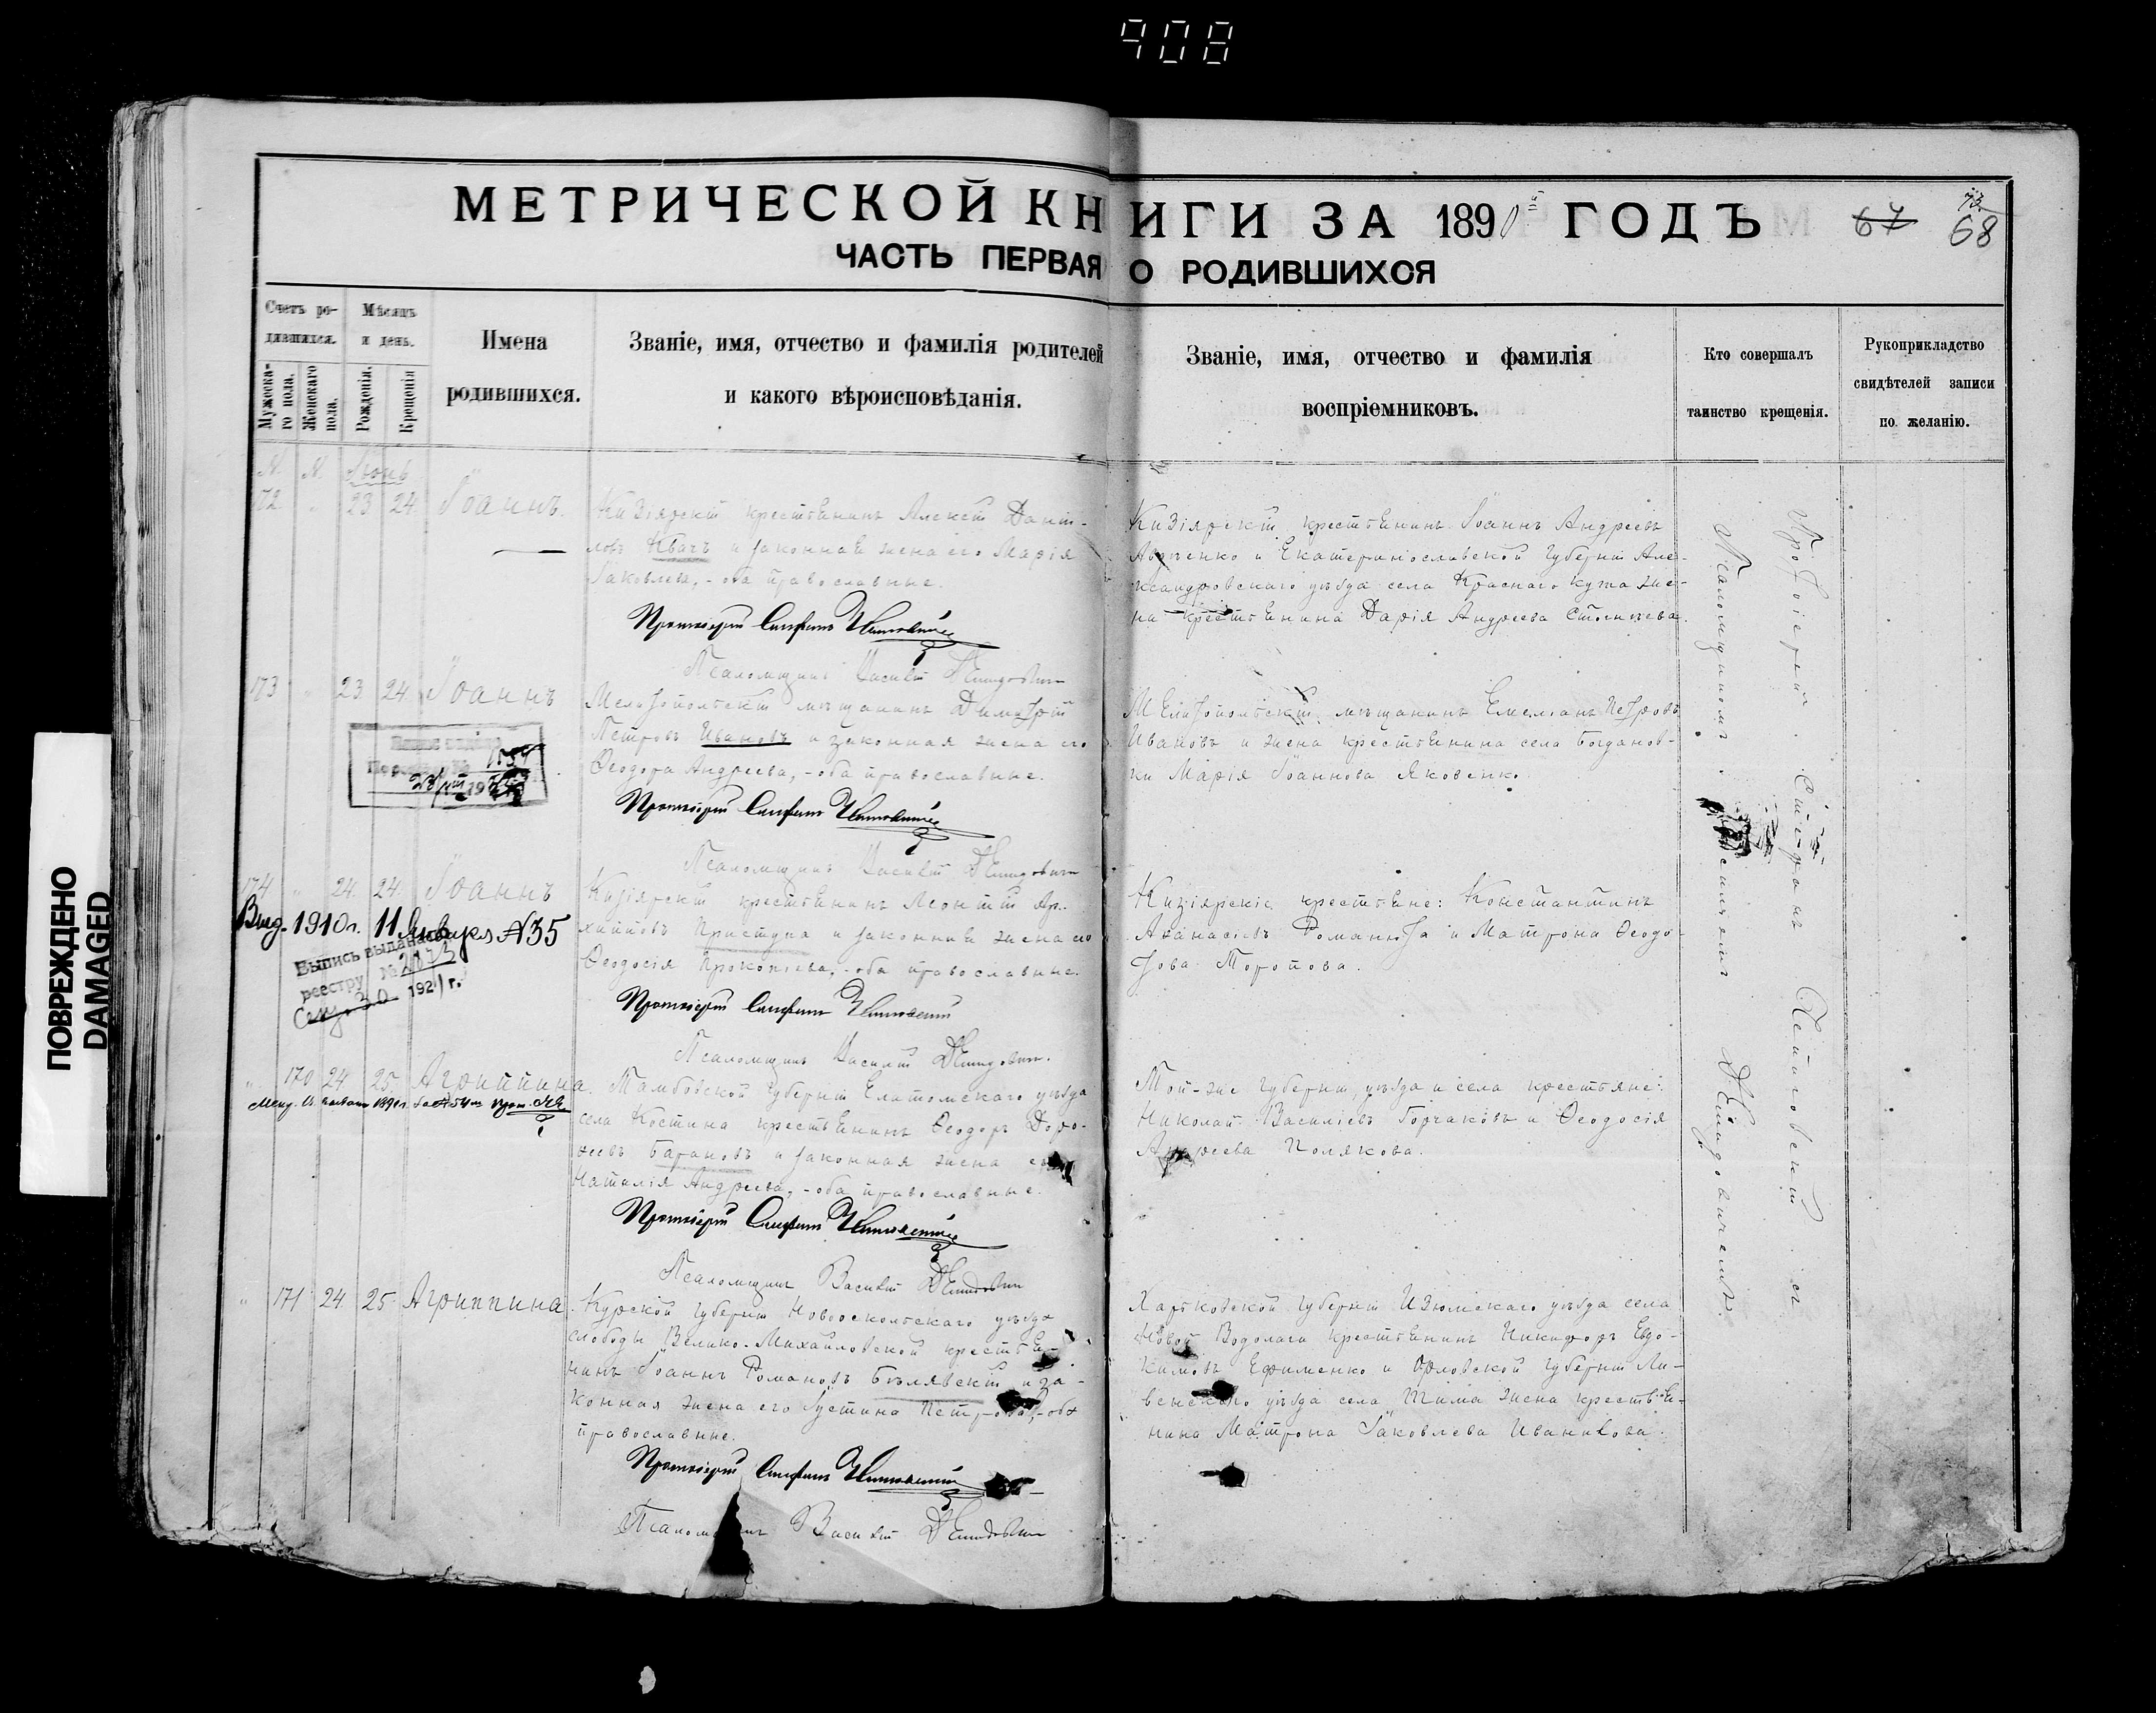 908
МЕТРИЧЕСКОЙ КНИГИ ЗА 1890й ГОДЪ
67 68
73.
ЧАСТЬ ПЕРВАЯ О РОДИВШИХСЯ
Счетъ родившихся.
Мужеска-го пола.
Женскаго пола.
Мѣсяцъ и день.
Рожденія.
Крещенія
Имена
родившихся.
Званіе, имя, отчество и фамилія родителей
и какого вѣроисповѣданія.
Званіе, имя, отчество и фамилія
воспріемниковъ.
Кто совершалъ
таинство крещенія.
Рукоприкладство
свидѣтелей записи
по желанію.
N. N. Іюнь
172. " 23 24 Іоаннъ.
Кизіярскій крестьянинъ Алексій Даніи-
ловъ Квачъ и законная жена его Марія
Іаковлева, - оба православные.
Протоіерей Стефанъ
Псаломщикъ Василій Демидовичъ
Кизіярскій крестьянинъ Іоаннъ Андреевъ
и Екатеринославской губерніи Але-
ксандровскаго уѣзда села Краснаго Кута же-
на крестьянина Дарія Андреева
173 " 23 24 Іоаннъ
Мелитопольскій мѣщанинъ Димитрій
Петровъ Ивановъ и законная жена его
Ѳеодора Андреева, - оба православные.
Протоіерей Стефанъ
Псаломщикъ Василій Демидовичъ
Мелитопольскій мѣщанинъ Емеліанъ Петровъ
Ивановъ и жена крестьянина села Богданов-
ки Марія Іоаннова Яковенко.
174 " 24 24 Іоаннъ
Выд. 1910 г. 11 Января №35
Выпись выдана
реестру №
30 1921 г.
Кизіярскій крестьянинъ Леонтій Ар-
хиповъ Приступа и законная жена его
Ѳеодосія Прокопіева, - оба православные.
Протоіерей Стефанъ
Псаломщикъ Василій Демидовичъ.
Кизіярскіе крестьяне: Константинъ
Аѳанасіевъ Романюта и Матрона Ѳеодо-
това Торопова.
" 170 24 25. Агриппина.
Тамбовской губерніи Елатомскаго уѣзда
села Костина крестьянинъ Ѳеодоръ Доро-
ѳеевъ Барановъ и законная жена его
Наталія Андреева, - оба православные.
Протоіерей Стефанъ
Псаломщикъ Василій Демидовичъ
Той-же губерніи, уѣзда и села крестьяне:
Николай Василіевъ Горчаковъ и Ѳеодосія
Андреева Полякова.
" 171 24. 25. Агриппина.
Курской губерніи Новооскольскаго уѣзда
слободы Велико-Михайловской крестья-
нинъ Іоаннъ Романовъ Бѣлявскій и за-
конная жена его Іустина Петрова, - оба
православные.
Протоіерей Стефанъ
Псаломщикъ Василій Демидовичъ
Харьковской губерніи Изюмскаго уѣзда села
Новой Водолаги крестьянинъ Никифоръ Евдо-
кимовъ Ефименко и Орловской губерніи Ли-
венскаго уѣзда села Тима жена крестьян-
нина Матрона Іаковлева Иванова.
Протоіерей Стефанъ съ
Псаломщикомъ Василіемъ Демидовичемъ.
ПОВРЕЖДЕНО
DAMAGED